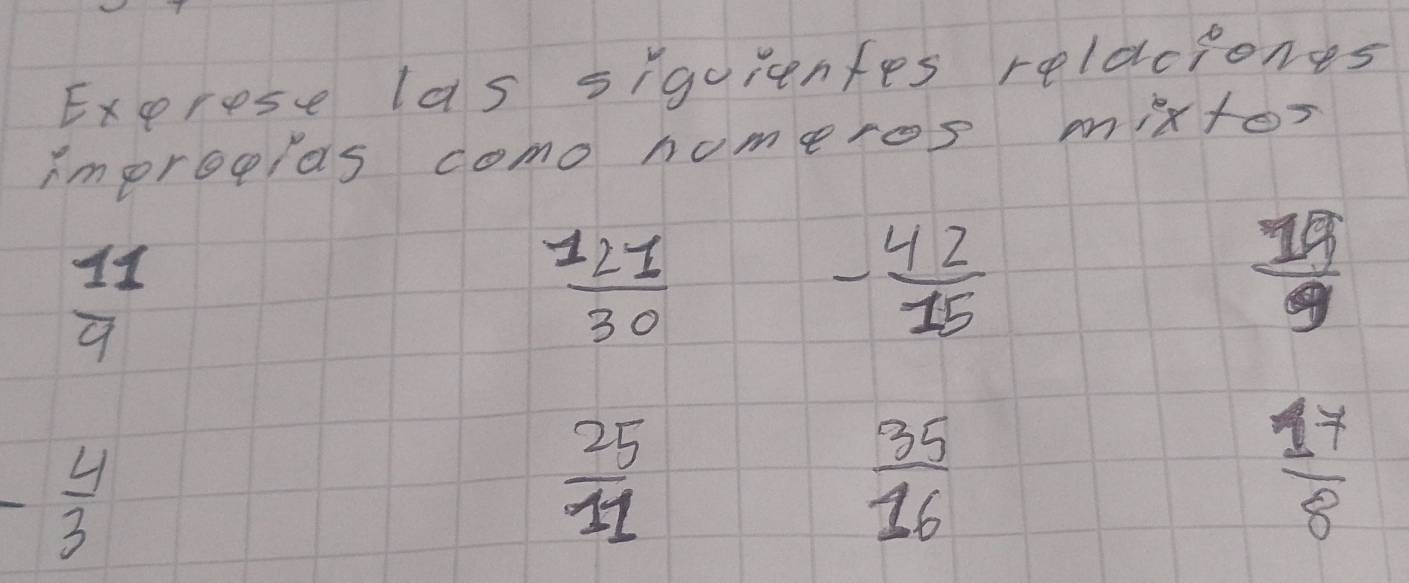 Exprese las siguientes relaciones
impropias como numeros mixtos
11/9 121/30 -42/15 /9
-4/3 25/11 35/16 17/8